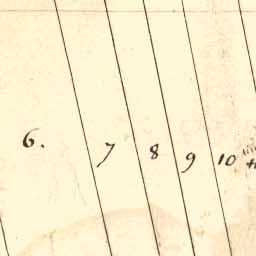 6. 7 8 9 10